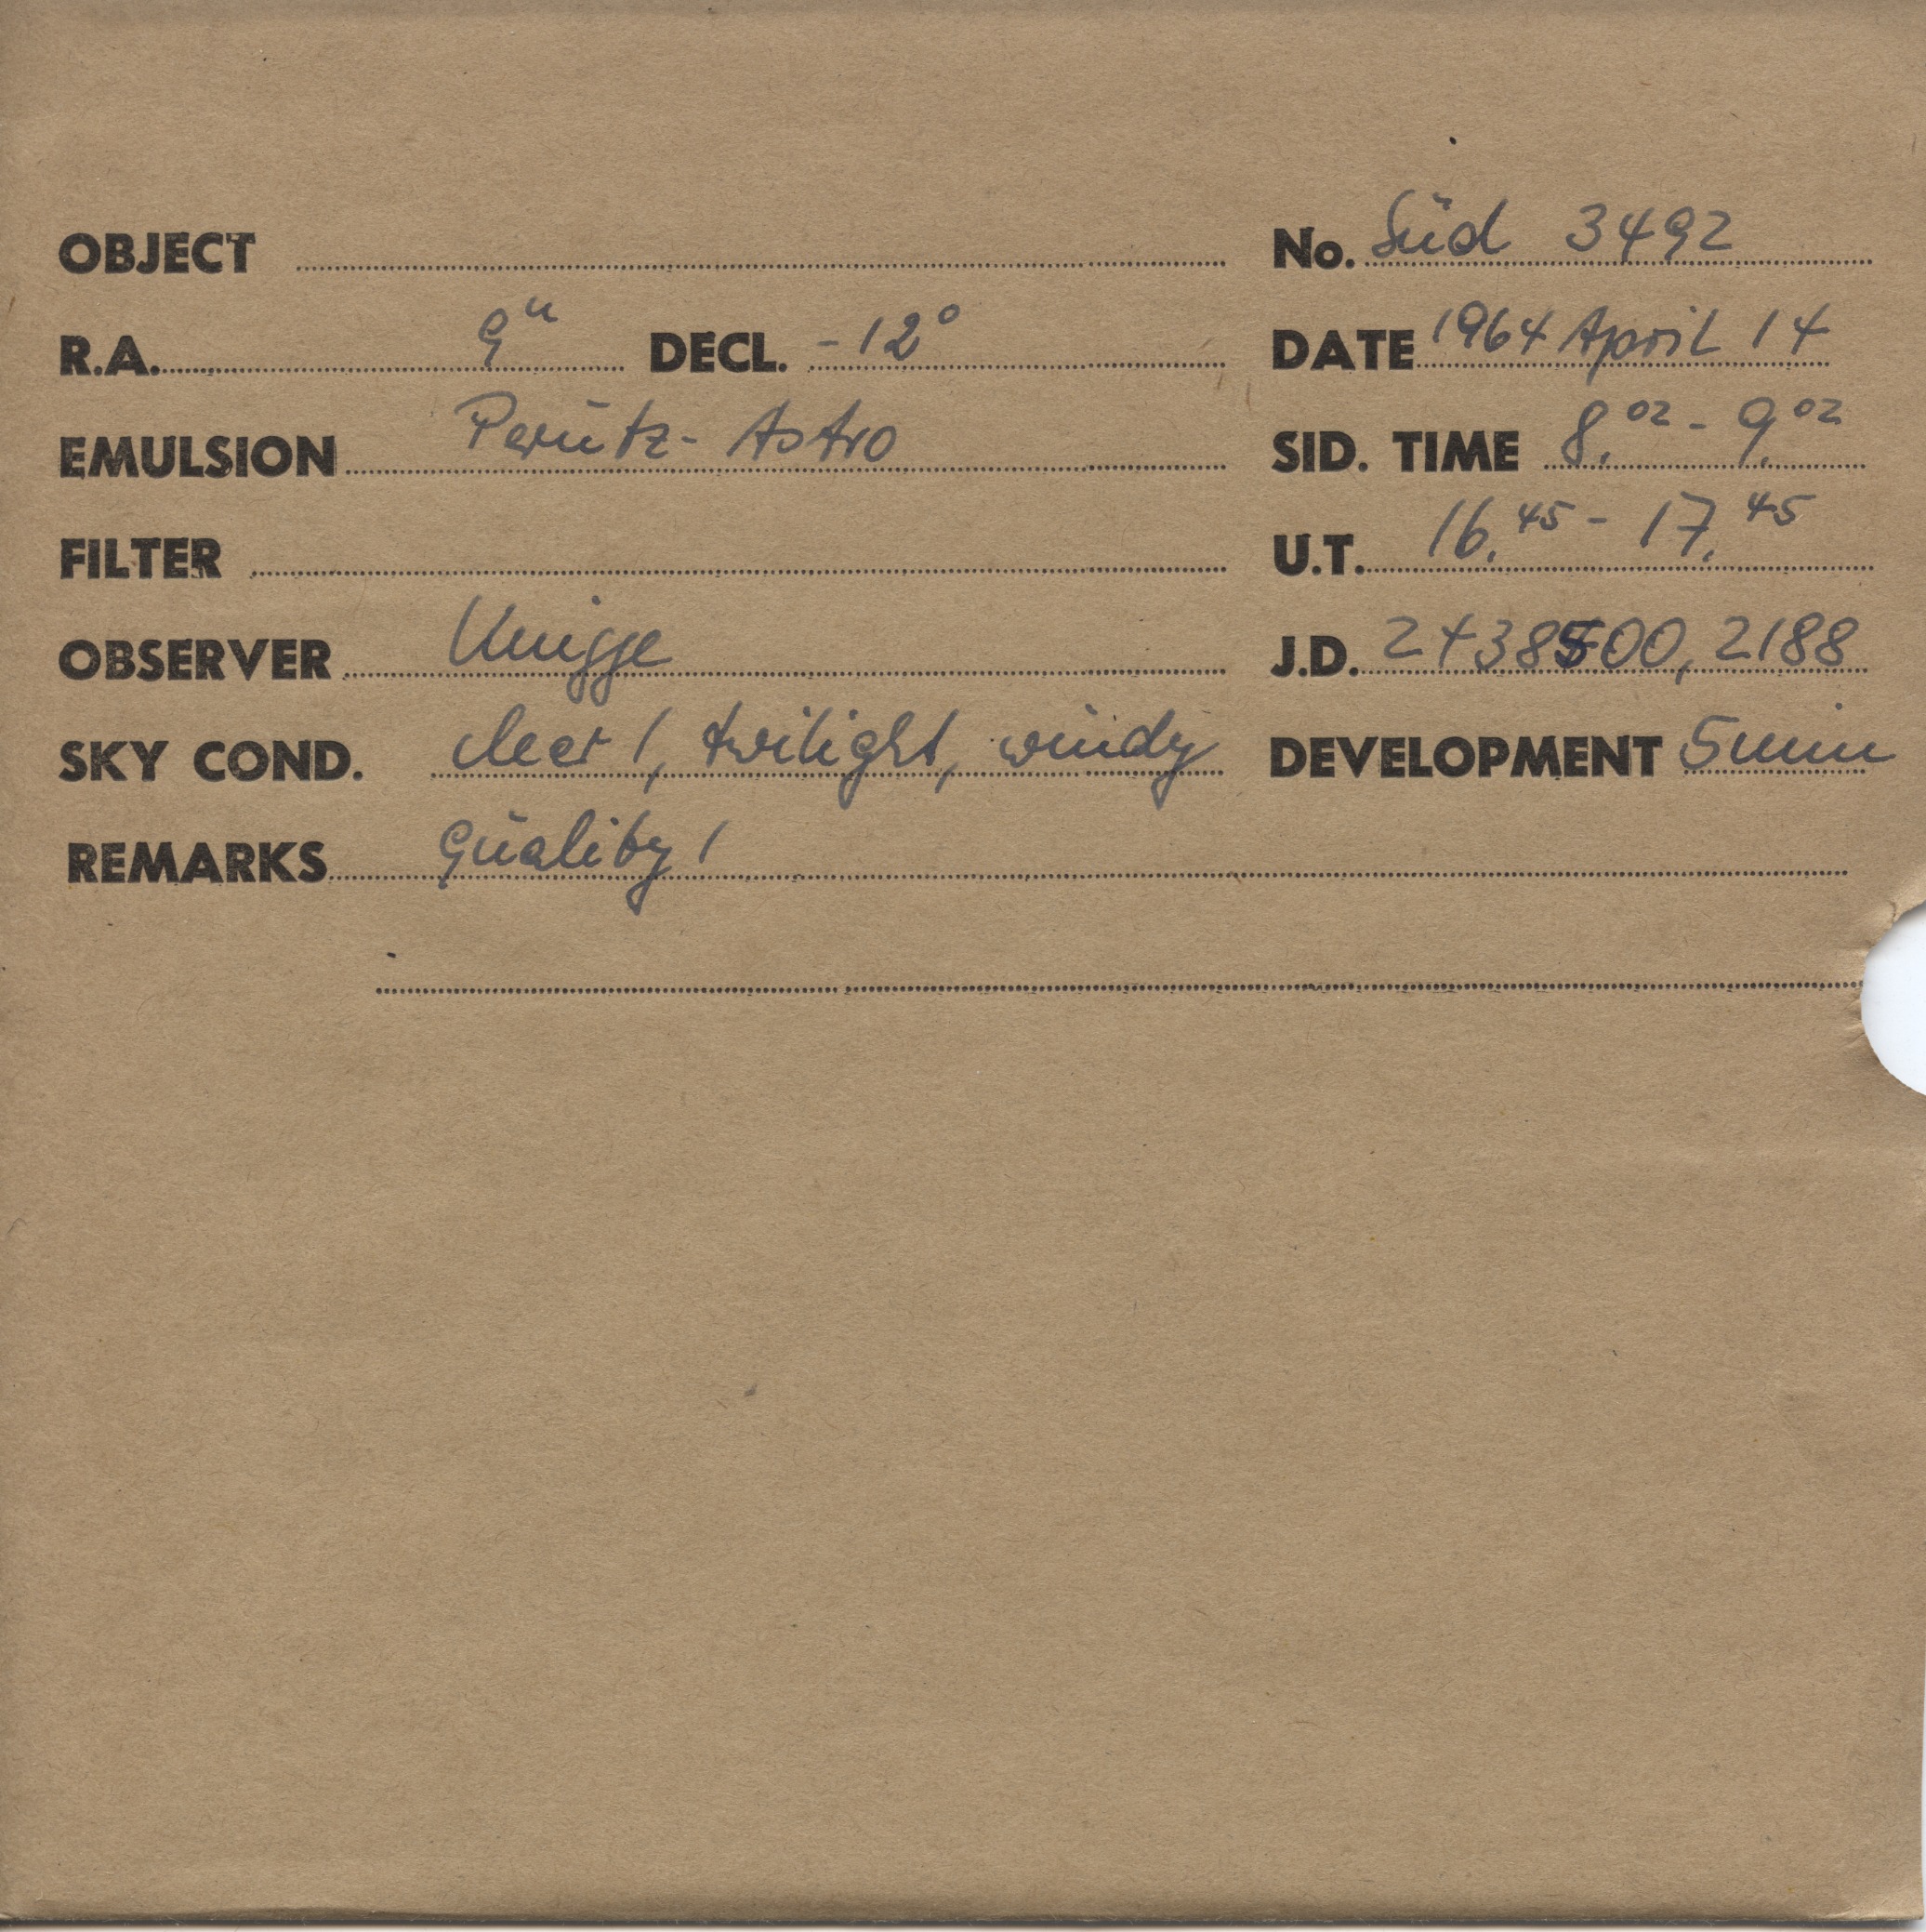 OBJECT No. Süd 3492
R.A. 9ʰ DECL. -12° DATE 1964 April 14
EMULSION Perutz-Astro SID. TIME 8.⁰² - 9.⁰²
FILTER U.T. 16.⁴⁵ - 17.⁴⁵
OBSERVER Knigge J.D. 2438500,2188
SKY COND. cleer 1, twilight, windy DEVELOPMENT 5 min
REMARKS Quality 1